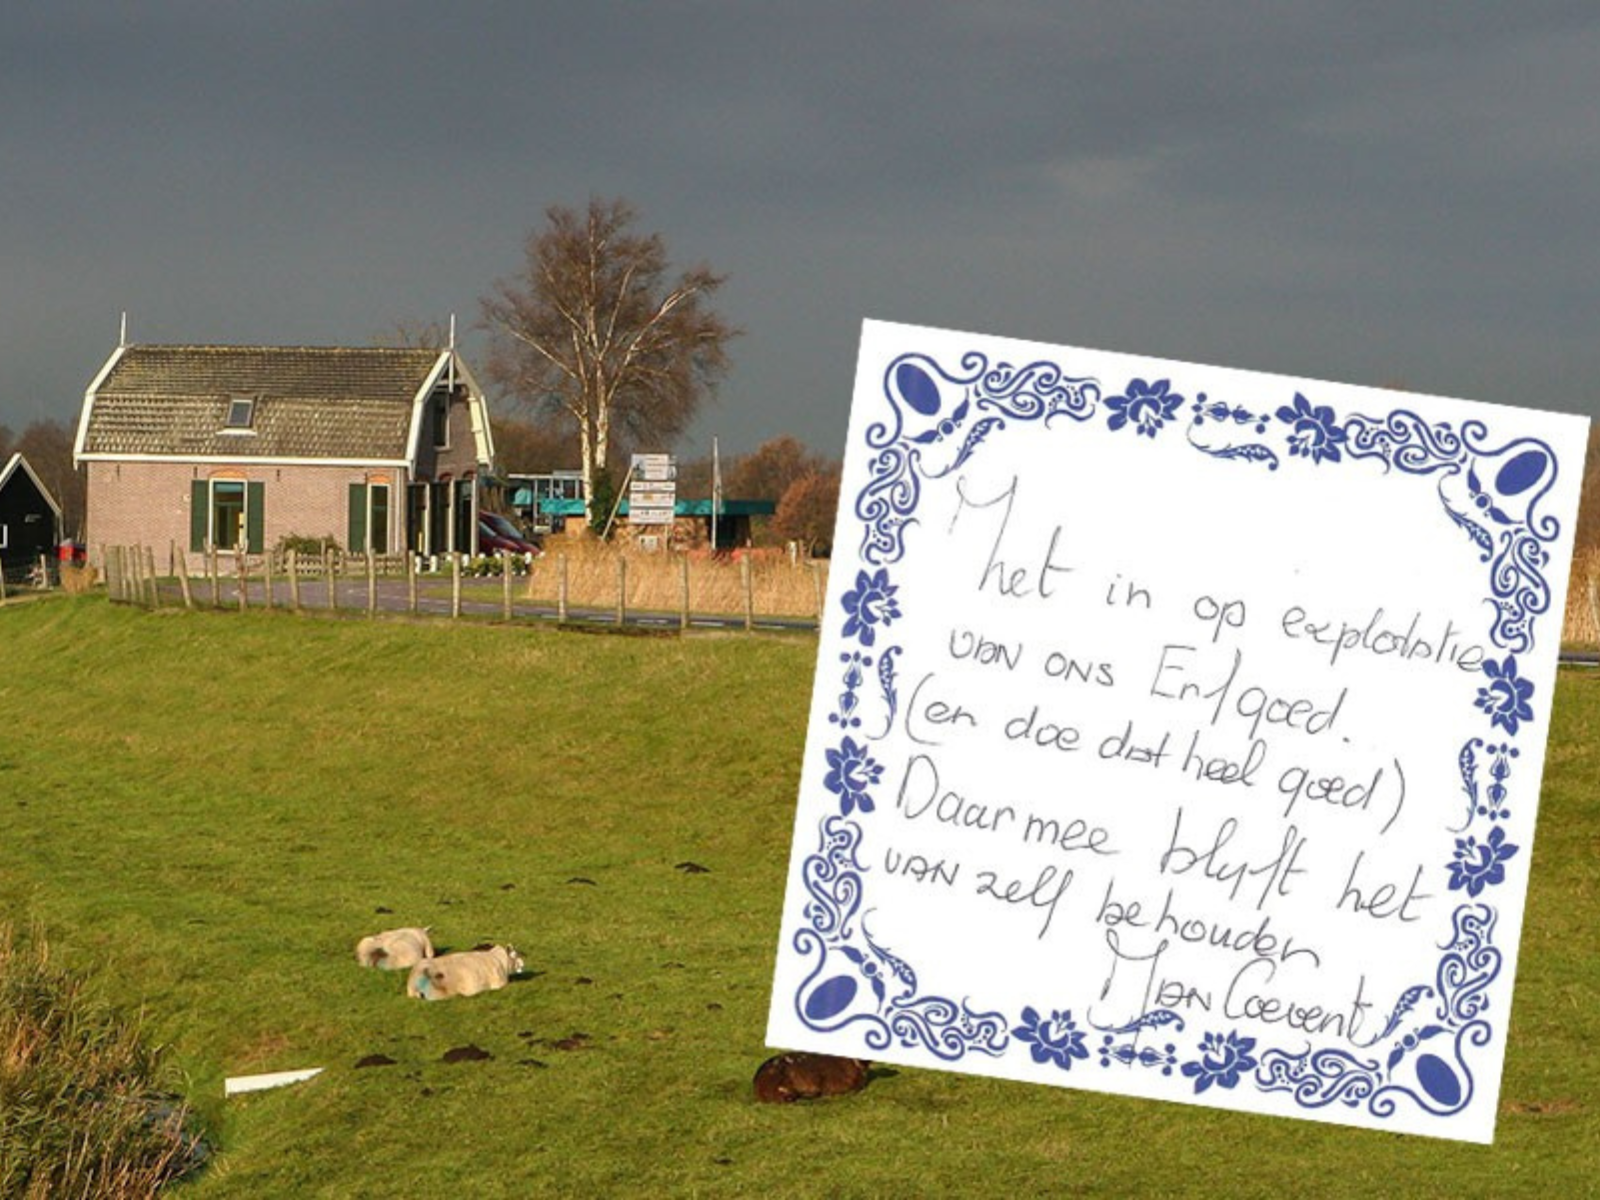 M
het in op exploitatie
van ons Erfgoed.
(en doe dat heel goed)
Daarmee blijft het
van zelf behouden
Man Coevent